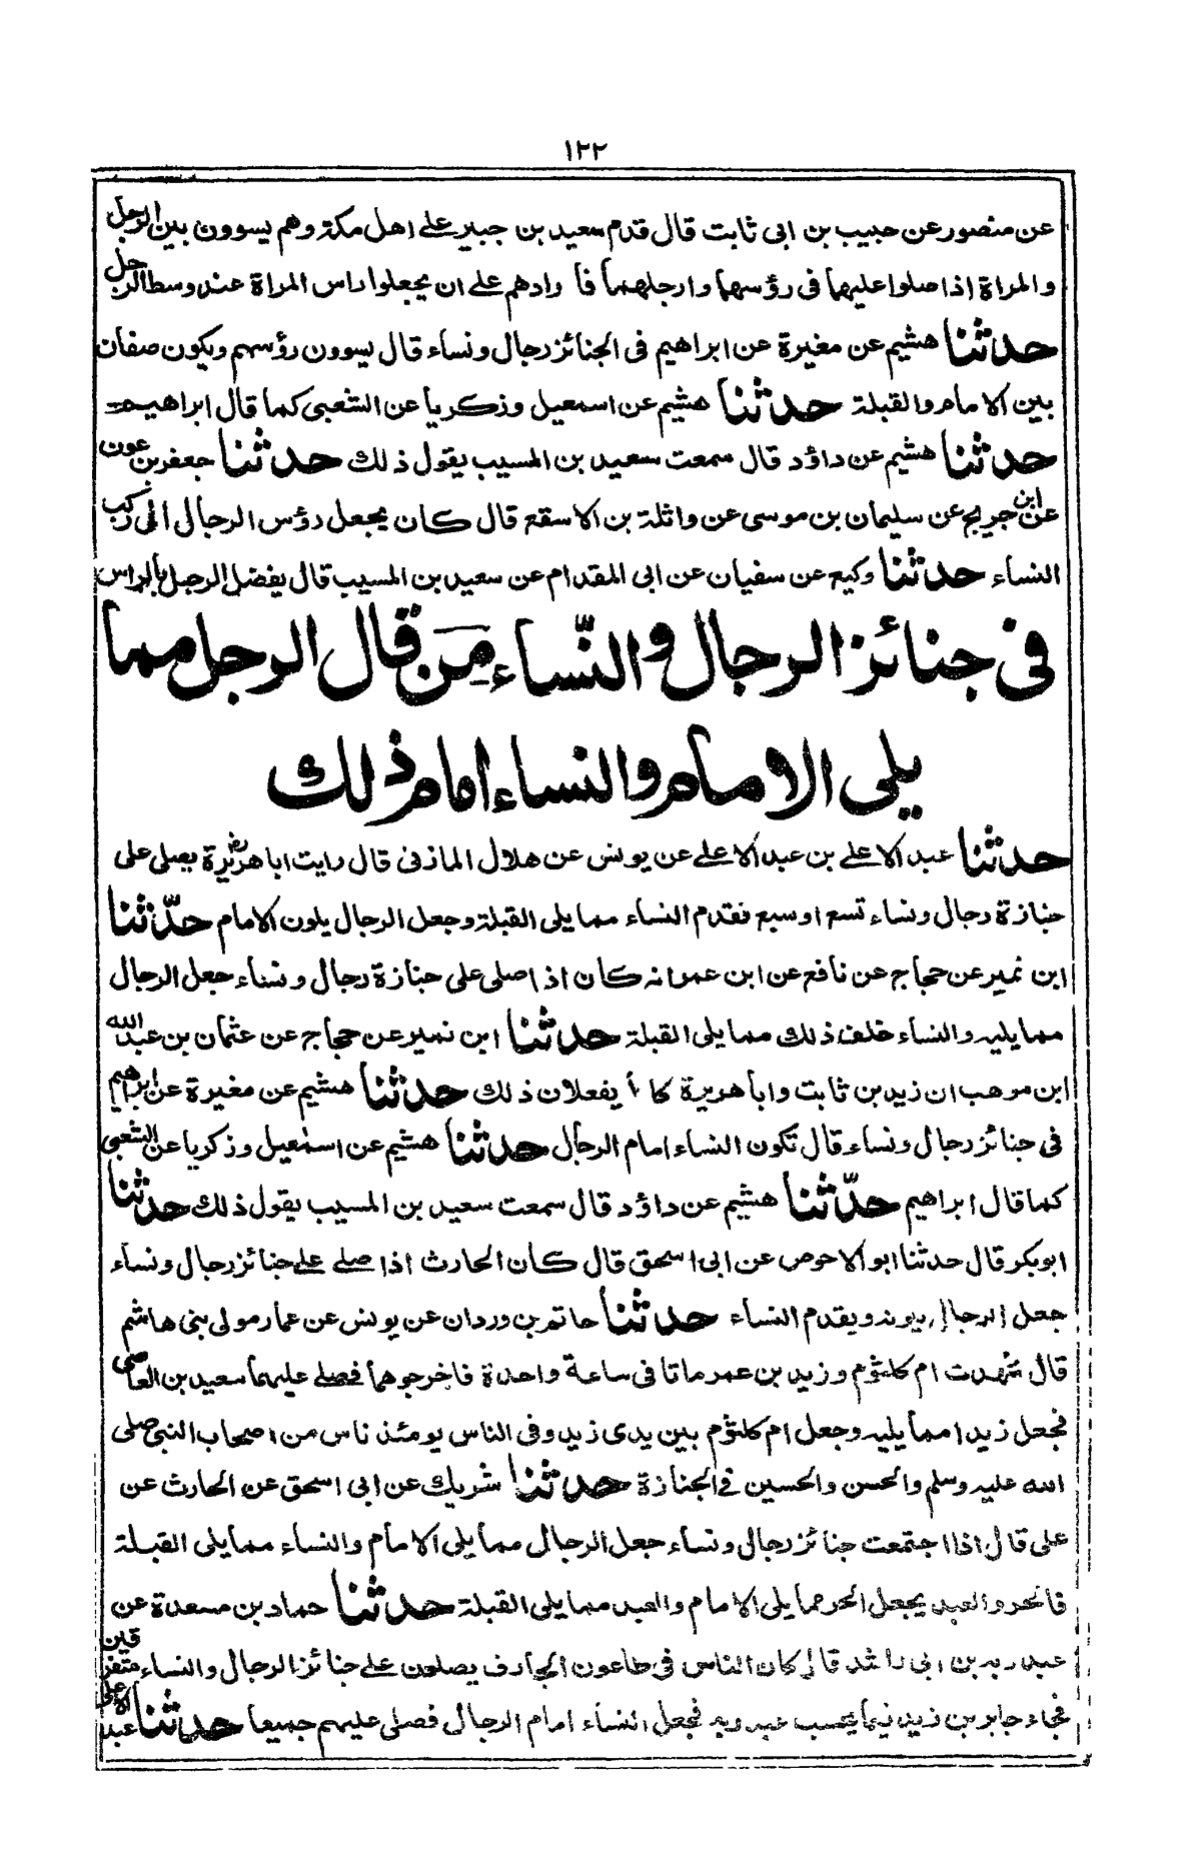 ١٢٢
عن منصور عن حبيب بن ابى ثابت قال قدم سعيد بن جبير على اهل مكة وهم يسوون بين الرجل
والمراة اذا صلوا عليهما فى رؤسهما وارجلهما فا رادهم على ان يجعلوا راس المراة عند وسط الرجل
حدثنا هشيم عن مغيرة عن ابراهيم فى الجنائز رجال ونساء قال يسوون رؤسهم ويكون صفان
بين الامام والقبلة حدثنا هشيم عن اسمعيل وزكريا عن الشعبى كما قال ابراهيم
حدثنا هشيم عن داؤد قال سمعت سعيد بن المسيب يقول ذلك حدثنا جعفر بن عون
عن ابن جريج عن سليمان بن موسى عن واثلة بن الاسقع قال كان يجعل رؤس الرجال الى ركب
النساء حدثنا وكيع عن سفيان عن ابى المقدام عن سعيد بن المسيب قال يفضل الرجل بالراس
فى جنائز الرجال والنّساء مَن قال الرجل مما
يلى الامام والنساء امام ذلك
حدثنا عبد الاعلى بن عبد الاعلى عن يونس عن هلال المازنى قال رايت ابا هريرة يصلى على
جنازة رجال ونساء تسع او سبع فقدم النساء مما يلى القبلة وجعل الرجال يلون الامام حدّثنا
ابن نمير عن حجاج عن نافع عن ابن عمر انه كان اذا صلى على جنازة رجال ونساء جعل الرجال
مما يليه والنساء خلف ذلك مما يلى القبلة حدثنا ابن نمير عن حجاج عن عثمان بن عبد الله
ابن موهب ان زيد بن ثابت وابا هريرة كانا يفعلان ذلك حدثنا هشيم عن مغيرة عن ابراهيم
فى جنائز رجال ونساء قال تكون النساء امام الرجال حدثنا هشيم عن اسمعيل وزكريا عن الشعبى
كما قال ابراهيم حدّثنا هشيم عن داؤد قال سمعت سعيد بن المسيب يقول ذلك حدثنا
ابوبكر قال حدثنا ابو الاحوص عن ابى اسحق قال كان الحارث اذا صلى على جنائز رجال ونساء
جعل الرجال يلونه ويقدم النساء حدثنا حاتم بن وردان عن يونس عن عمار مولى بنى هاشم
قال شهدت ام كلثوم وزيد بن عمر ماتا فى ساعة واحدة فاخرجوهما فصلى عليهما سعيد بن العاصى
فجعل زيدا مما يليه وجعل ام كلثوم بين يدى زيد وفى الناس يومئذ ناس من اصحاب النبى صلى
الله عليه وسلم والحسن والحسين فى الجنازة حدثنا شريك عن ابى اسحق عن الحارث عن
على قال اذا اجتمعت جنائز رجال ونساء جعل الرجال مما يلى الامام والنساء مما يلى القبلة
فالحر والعبد يجعل الحر مما يلى الامام والعبد مما يلى القبلة حدثنا حماد بن مسعدة عن
عبد ربه بن ابى راشد قال كان الناس فى طاعون الجارف يصلون على جنائز الرجال والنساء متفرقين
فجاء جابر بن زيد فيما يحسب عبد ربه فجعل النساء امام الرجال فصلى عليهم جميعا حدثنا عبد الاعلى